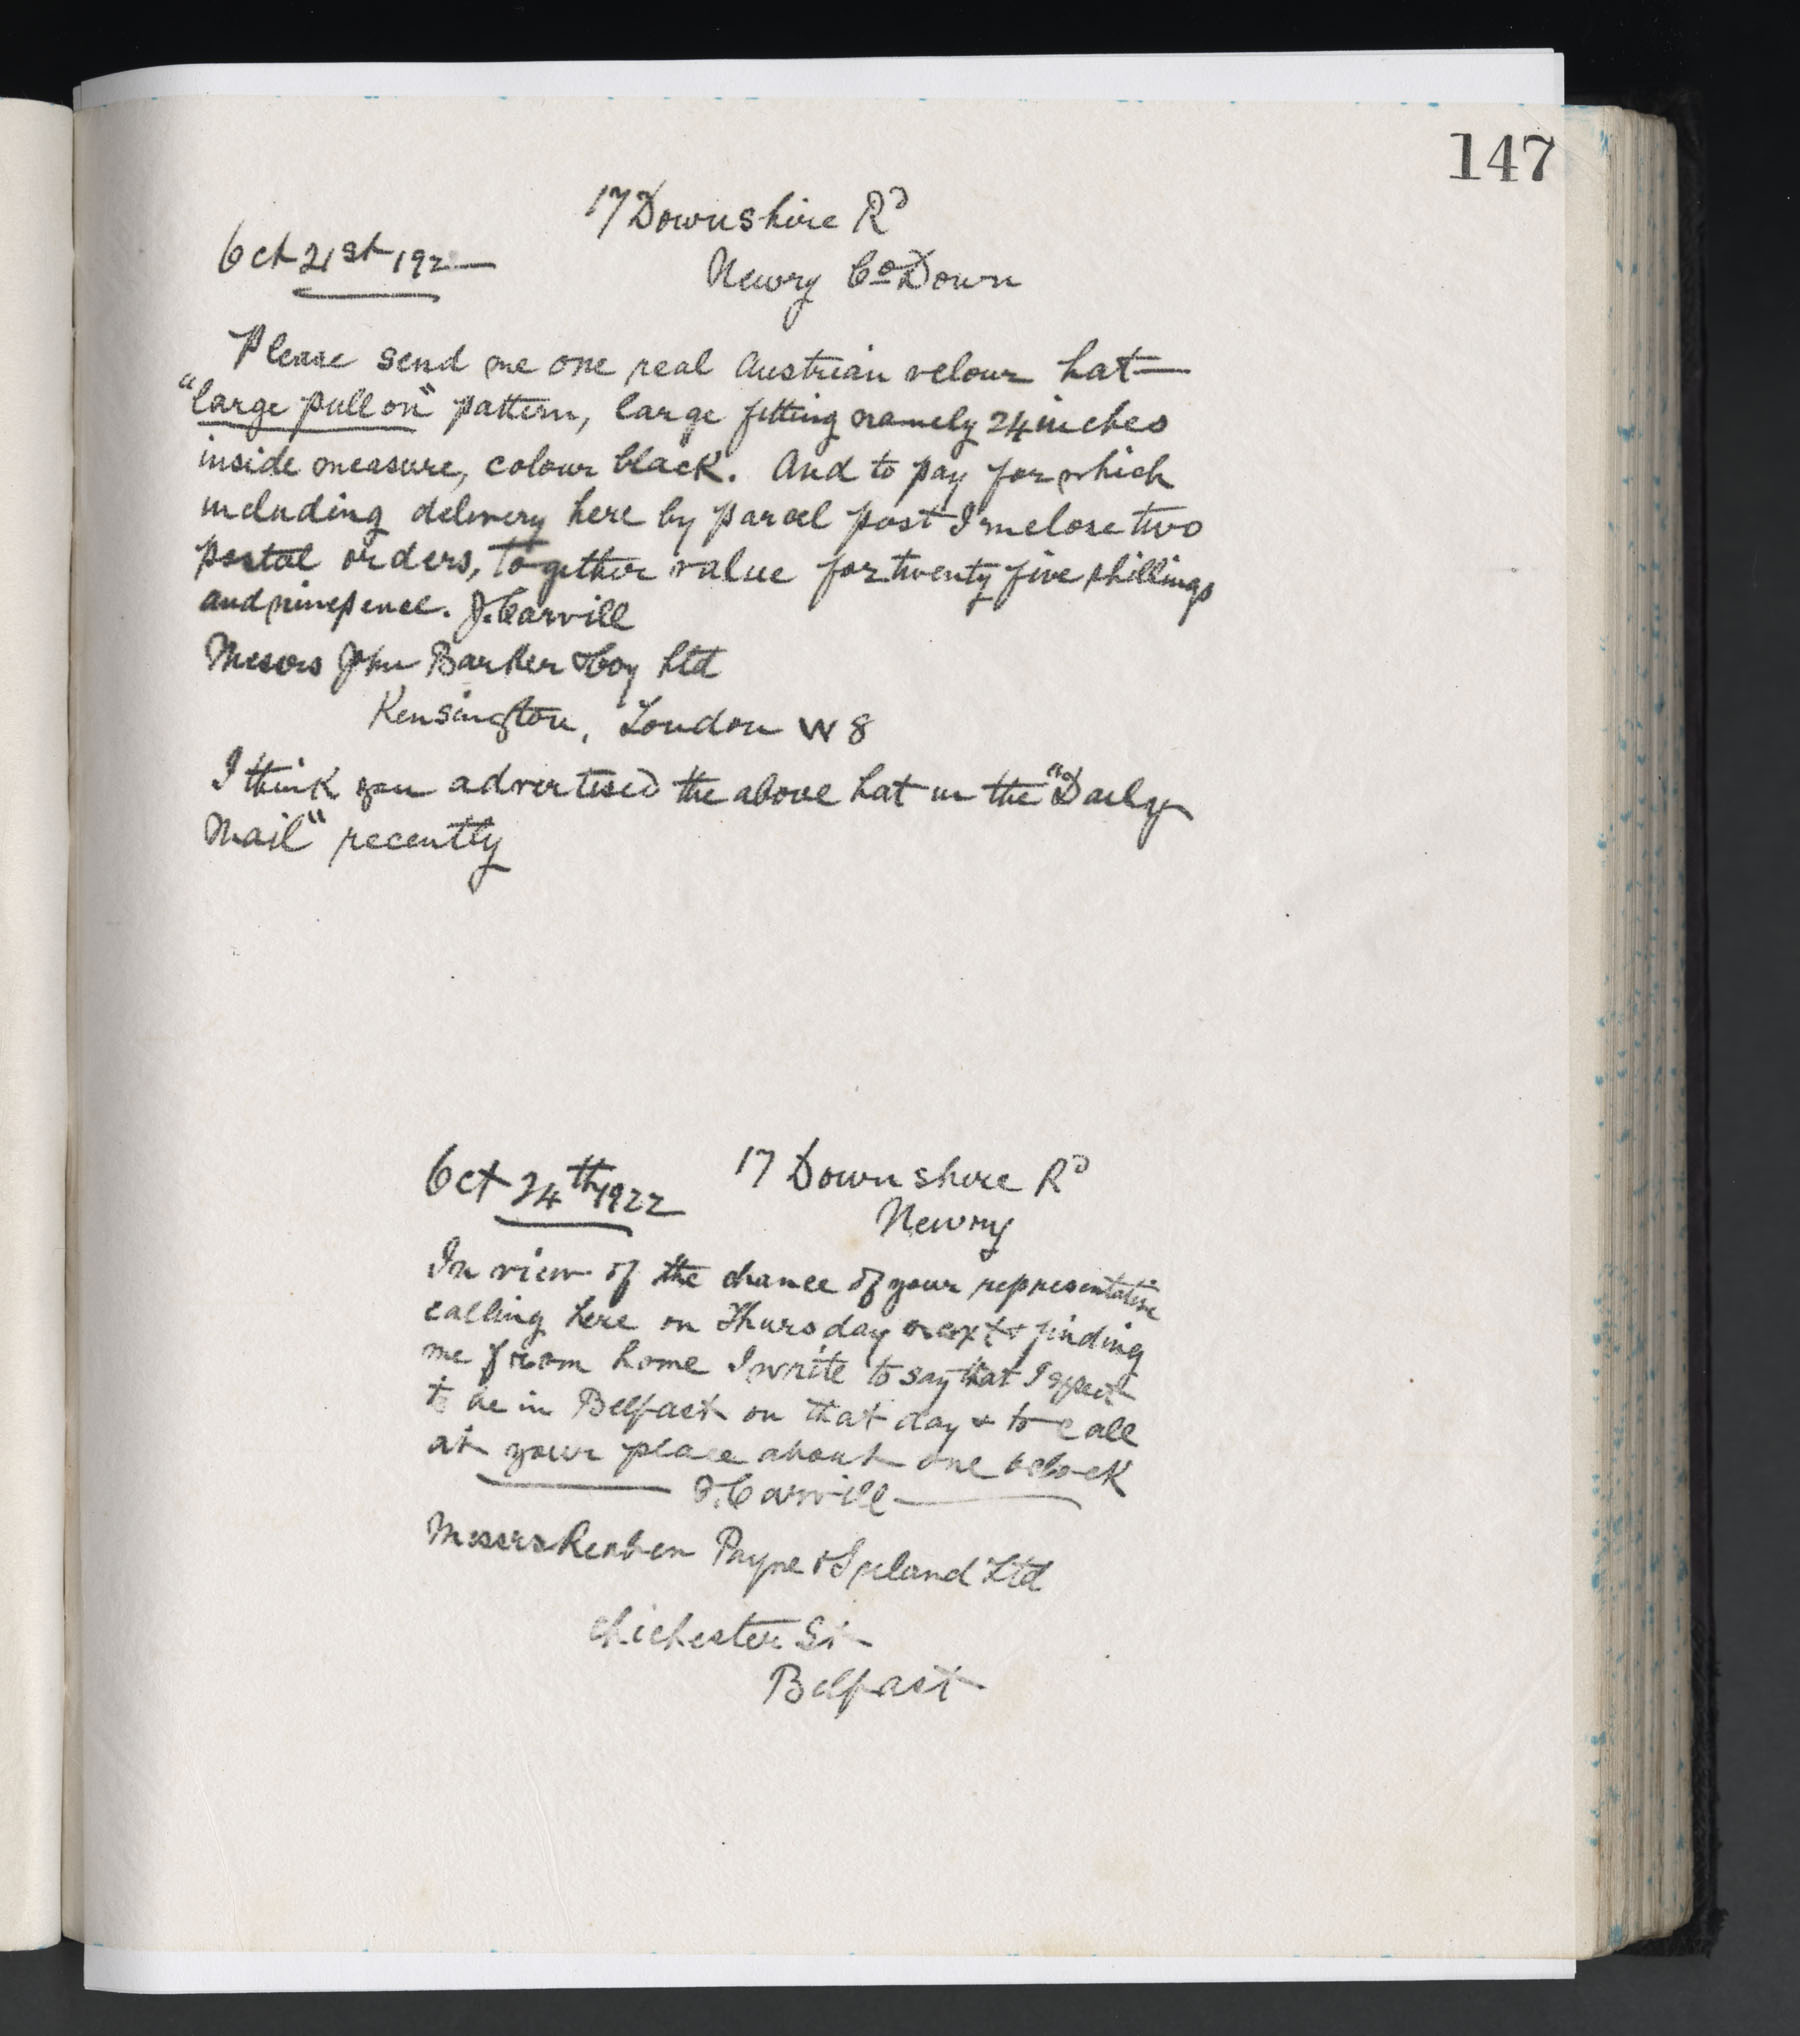 147
17 Downshire Rd
Oct 21st 192
Newry Co Down
Please send me one real Austrian velour hat—
"large pull on" pattern, large fitting namely 24 inches
inside measure, colour black. And to pay for which
including delivery here by parcel post I inclose two
postal orders, together value for twenty five shillings
and ninepence. J. Carvill
Messrs John Barker & Coy Ltd
Kensington, London W8
I think you advertised the above hat in the "Daily
Mail" recently
Oct 24th 1922
17 Downshire Rd
Newry
In view of the chance of your representative
calling here on Thursday next & finding
me from home I write to say that I expect
to be in Belfast on that day & to call
at your place about one oclock
J. Carvill
Messrs Reuben Payne & Ireland Ltd
Chichester St
Belfast